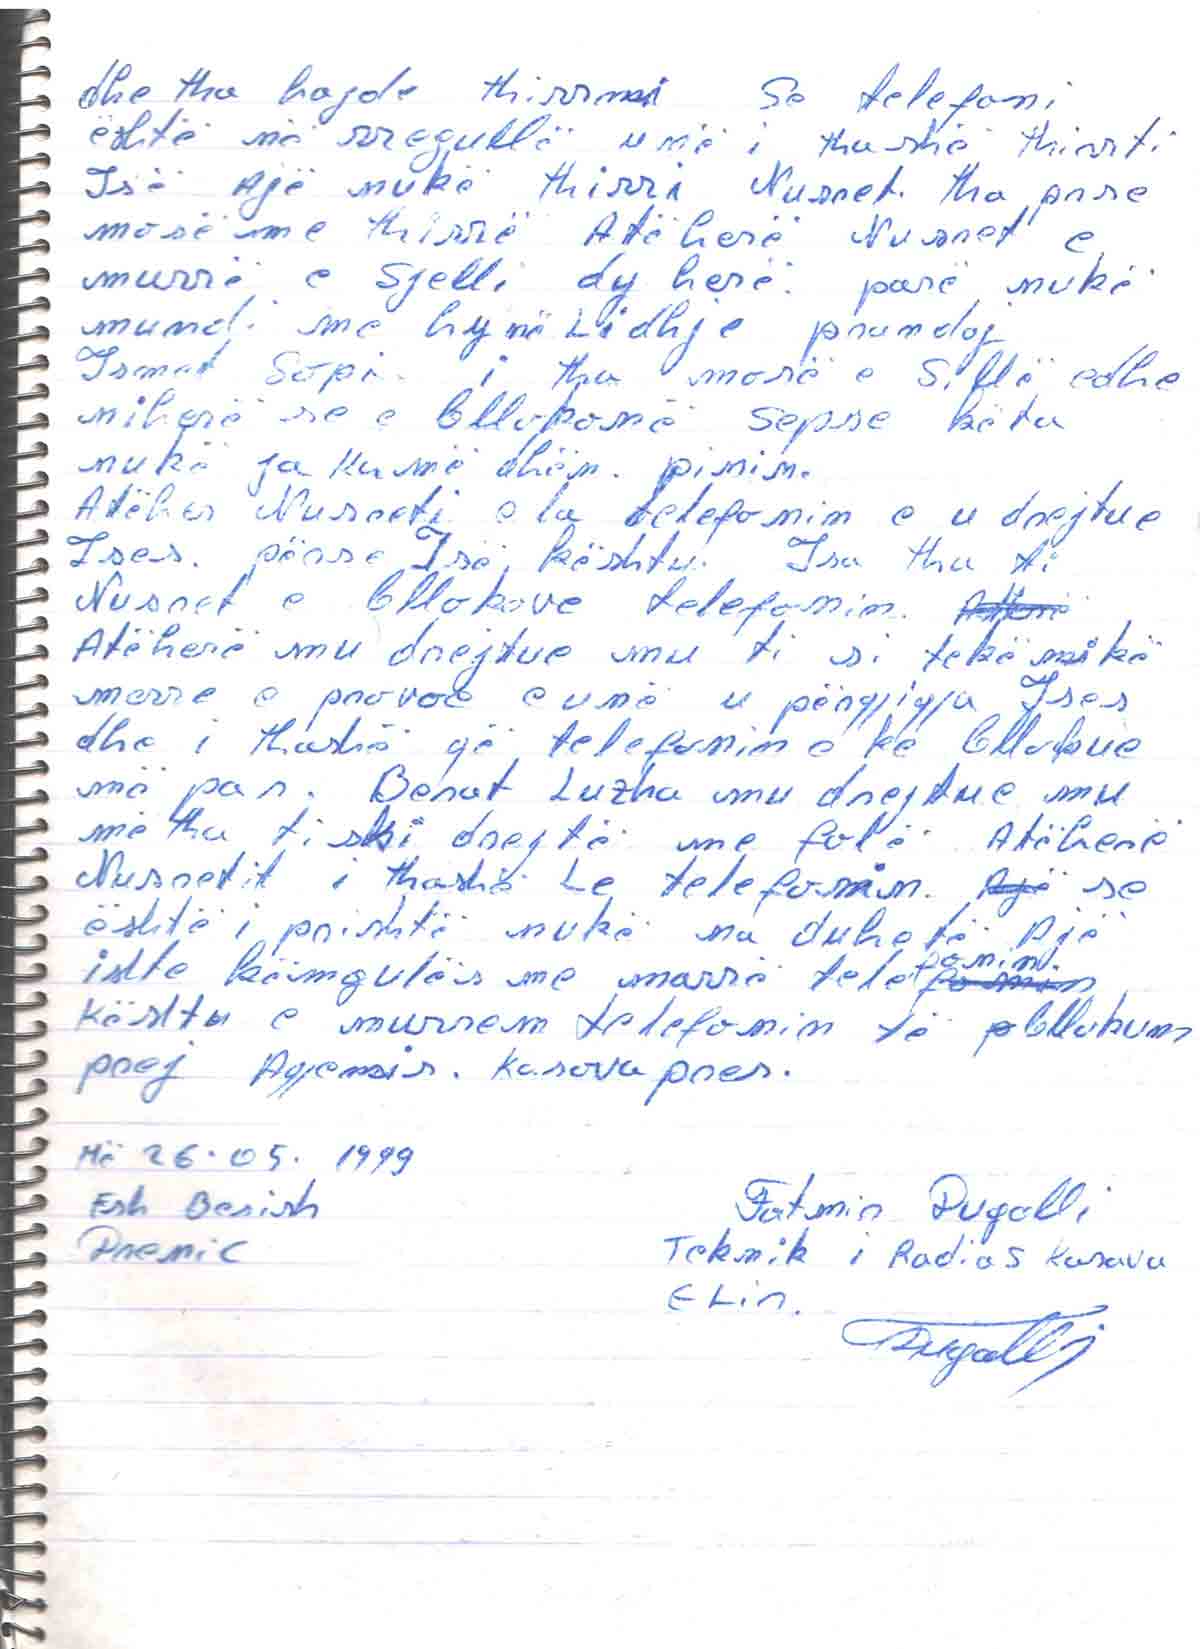 dhe tha hajde thirrmi Se telefoni
është në rregullë unë i thashë thirrti
Isë Ajë nukë thirri Nusret. tha prse
mosë me thirrë Atëherë Nusret e
murrë e Sjelli dy herë. parë nukë
mundi me hynë Lidhje prandaj
Ismet Sopi. i tha mosë e Sillë edhe
niherë se e bllokonë Sepse këtu
nukë ja kumë dhën. pinin.
Atëher Nusreti e la telefonin e u drejtue
Ises. përse Isë kështu. Isa tha ti
Nusret e bllokove telefonin.
Atëherë mu drejtue mu ti si tekënikë
marre e provoe e unë u përgjigja Ises
dhe i thashë që telefonin e ke bllokue
më par. Berat Luzha mu drejtue mu
më tha ti ski drejtë me folë. Atëherë
Nusretit i thashë Le telefonin. Ajë se
është i prishtë nukë na duhetë Ajë
iste këmgulës me marrë telefonini
Kështu e murrem telefonin të bllokum
prej Agjensis. Kosova pres.
Më 26.05. 1999
Esh Berish
Drenic
Fatmir Dugolli
Teknik i Radios Kosova
E Lir.
Dugolli